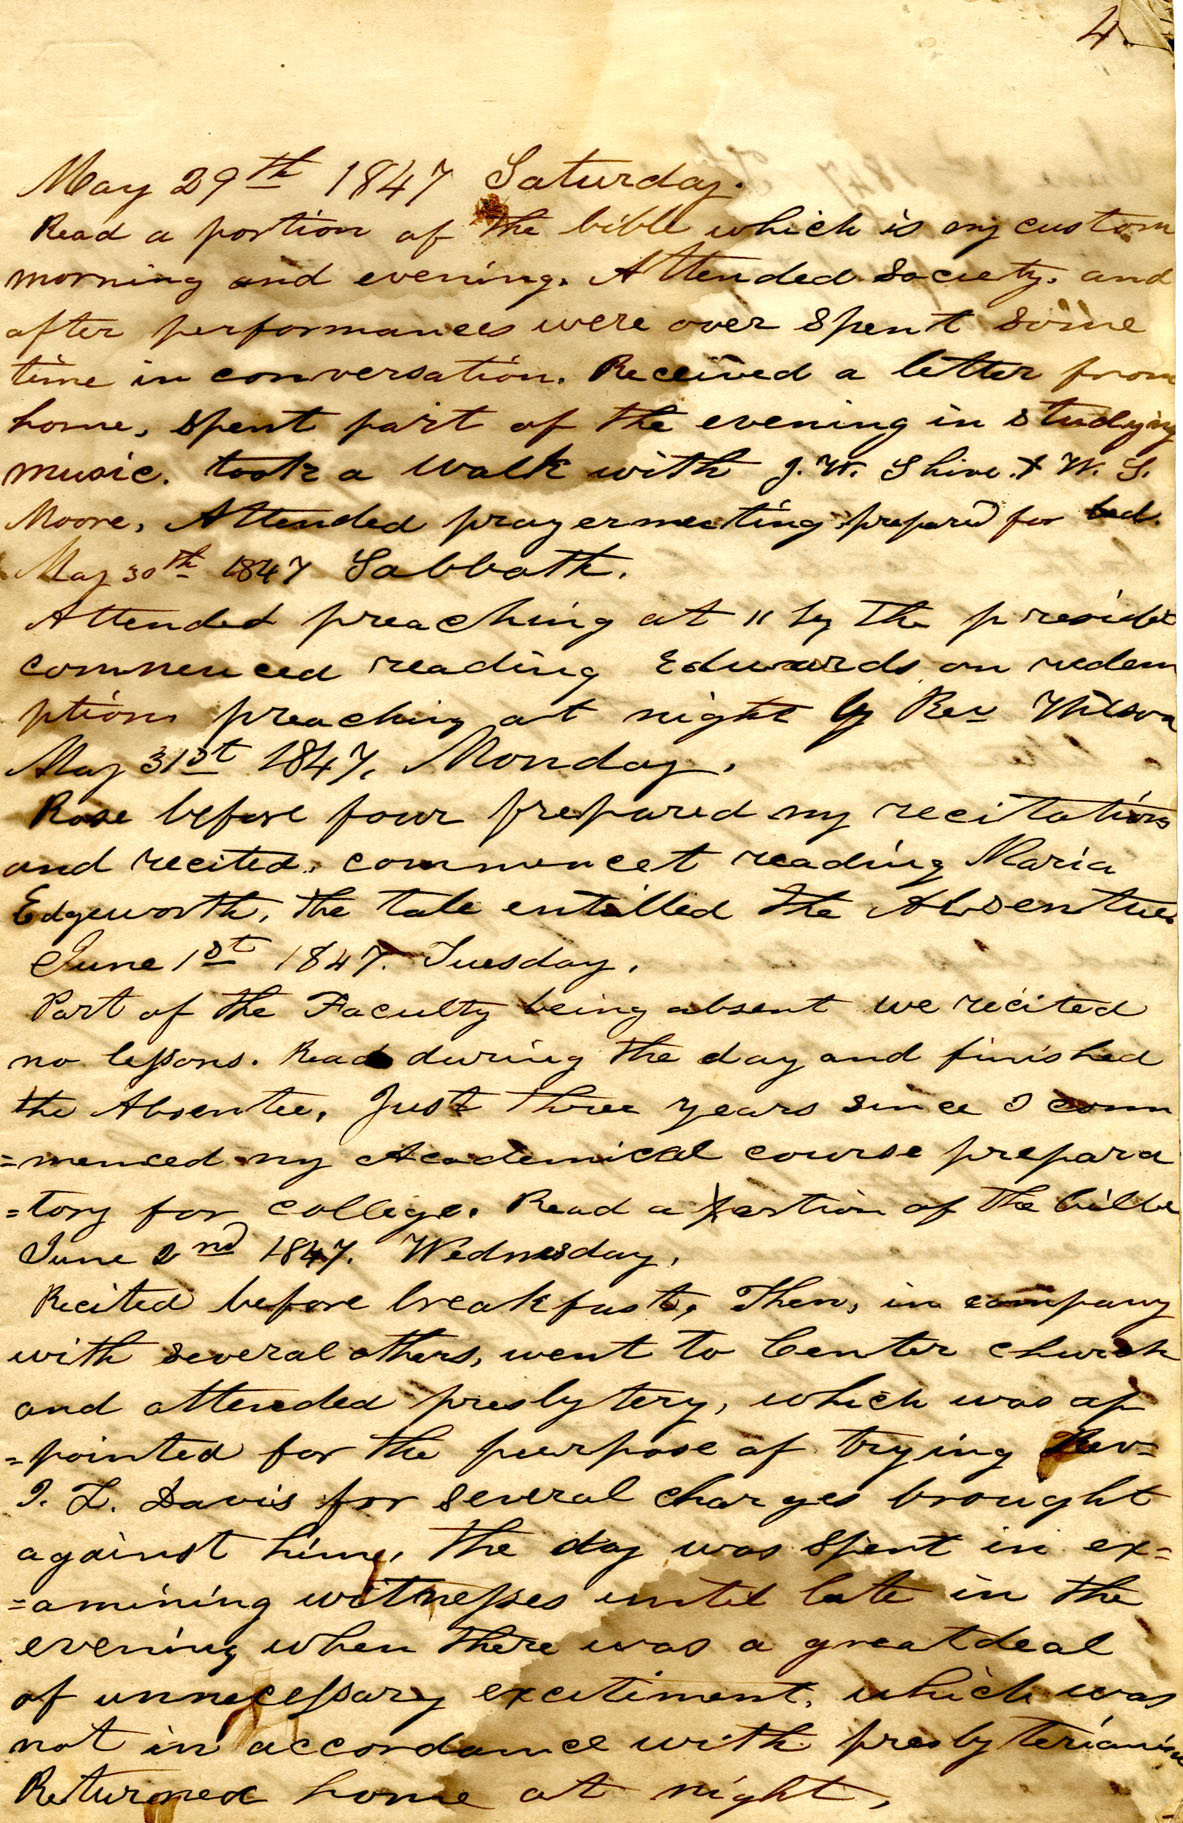 4.
May 29th 1847 Saturday.
Read a portion of the bible which is my custom
morning and evening. Attended Society. and
after performances were over spent some
time in conversation. Received a letter from
home, spent part of the evening in studying
music. took a walk with J. W. Shive & W. S.
Moore, Attended prayermeeting prepared for bed.
May 30th 1847 Sabbath.
Attended preaching at 11 by the presidt
commenced reading Edwards on redem
ption preaching at night by Rev Wilson
May 31st 1847, Monday.
Rose before four prepared my recitations
and recited, commencet reading Maria
Edgeworth, the tale entilled the Absentee
June 1st 1847. Tuesday.
Part of the Faculty being absent we recited
no lessons. Read during the day and finished
the Absentee, Just three years since I com
=menced my Academical course prepara
=tory for college. Read a portion of the bilbe
June 2nd 1847. Wednesday.
Recited before breakfast, Then, in company
with several others, went to Center church
and attended presbytery, which was ap
=pointed for the purpose of trying Rev=
J. L. Davis for several charges brought
against him, The day was spent in ex=
=amining witnesses until late in the
evening when there was a great deal
of unnecessary excitiment, which was
not in accordance with presbyterianism
Returned home at night,